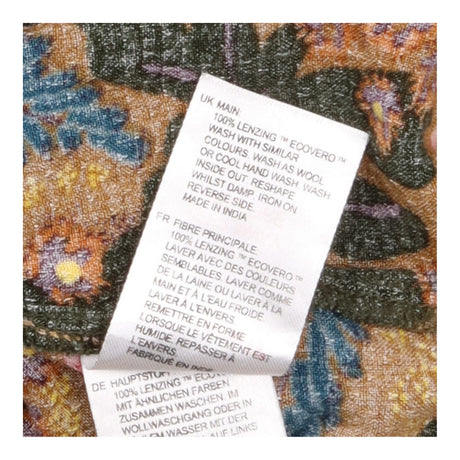 UK MAIN:
100% LENZING ™ ECOVERO™
WASH WITH SIMILAR
COLOURS, WASH AS WOOL
OR COOL HAND WASH. WASH
INSIDE OUT. RESHAPE
WHILST DAMP. IRON ON
REVERSE SIDE.
MADE IN INDIA
FR FIBRE PRINCIPALE:
100% LENZING ™ ECOVERO™
LAVER AVEC DES COULEURS
SEMBLABLES, LAVER COMME
DE LA LAINE OU LAVER À LA
MAIN ET À L'EAU FROIDE.
LAVER À L'ENVERS.
REMETTRE EN FORME
LORSQUE LE VÊTEMENT EST
HUMIDE. REPASSER À
L'ENVERS
FABRIQUÉ EN INDE
DE HAUPTSTOFF
100% LENZING ™ ECOVERO™
MIT ÄHNLICHEN FARBEN
ZUSAMMEN WASCHEN. IM
WOLLWASCHGANG ODER IN
WASSER MIT DER
AUF LINKS